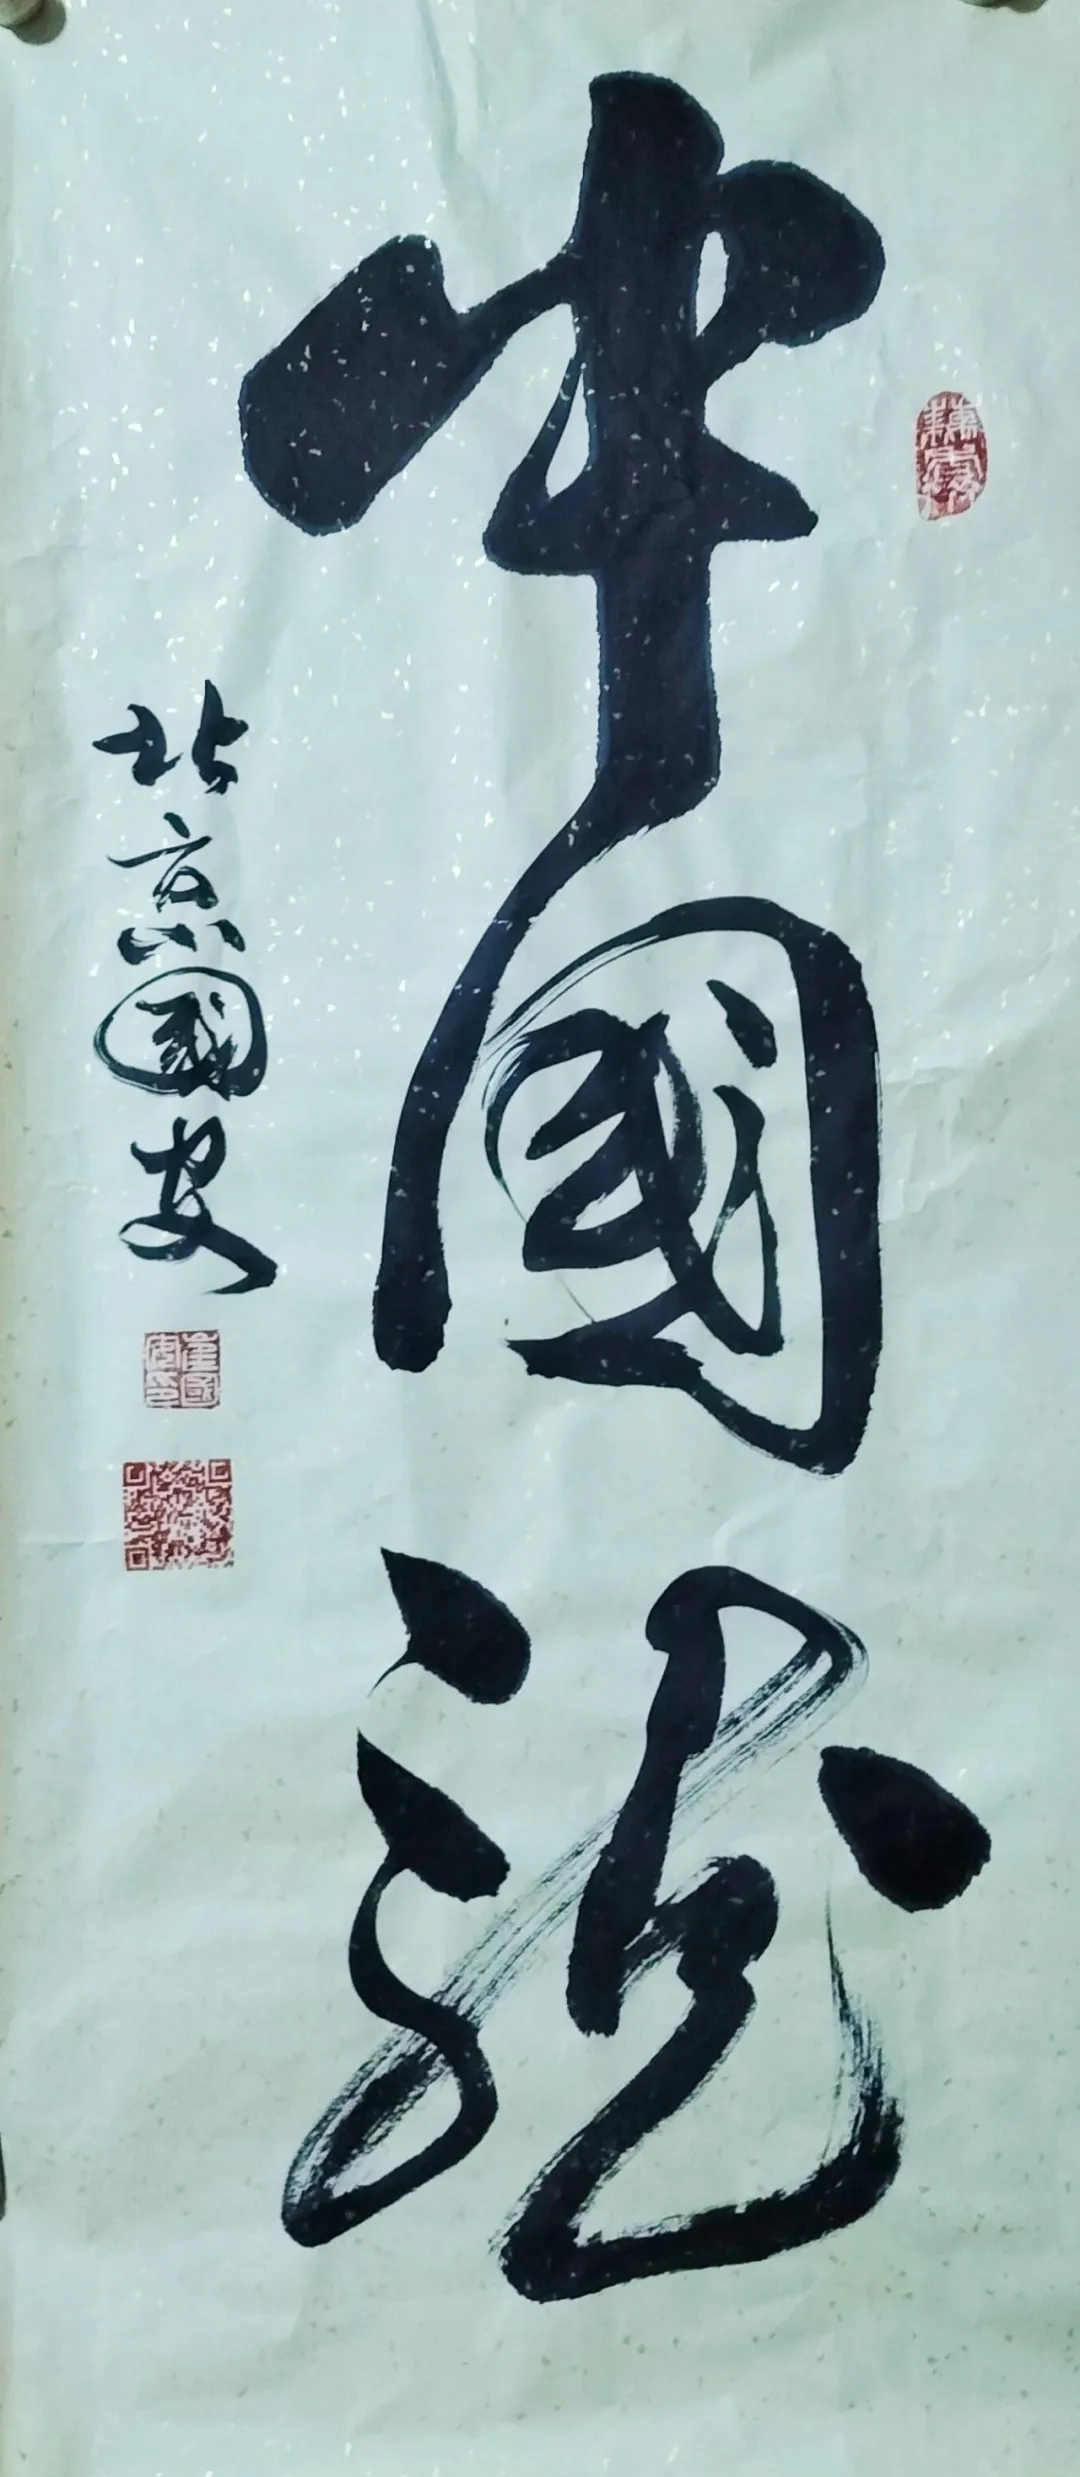 中國龍
北京國安